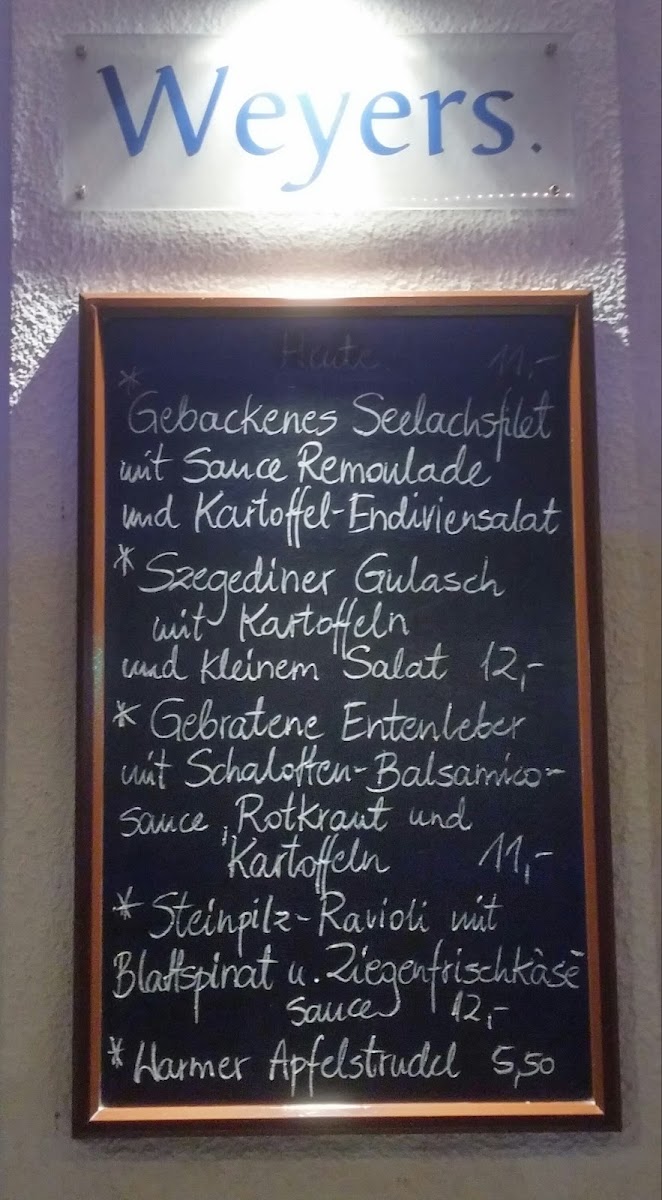 Weyers.
Heute 11,-
* Gebackenes Seelachsfilet
mit Sauce Remoulade
und Kartoffel-Endiviensalat
* Szegediner Gulasch
mit Kartoffeln
und kleinem Salat 12,-
* Gebratene Entenleber
mit Schalotten-Balsamico-
sauce, Rotkraut und
Kartoffeln 11,-
* Steinpilz-Ravioli mit
Blattspinat u. Ziegenfrischkäse
sauce 12,-
* Warmer Apfelstrudel 5,50